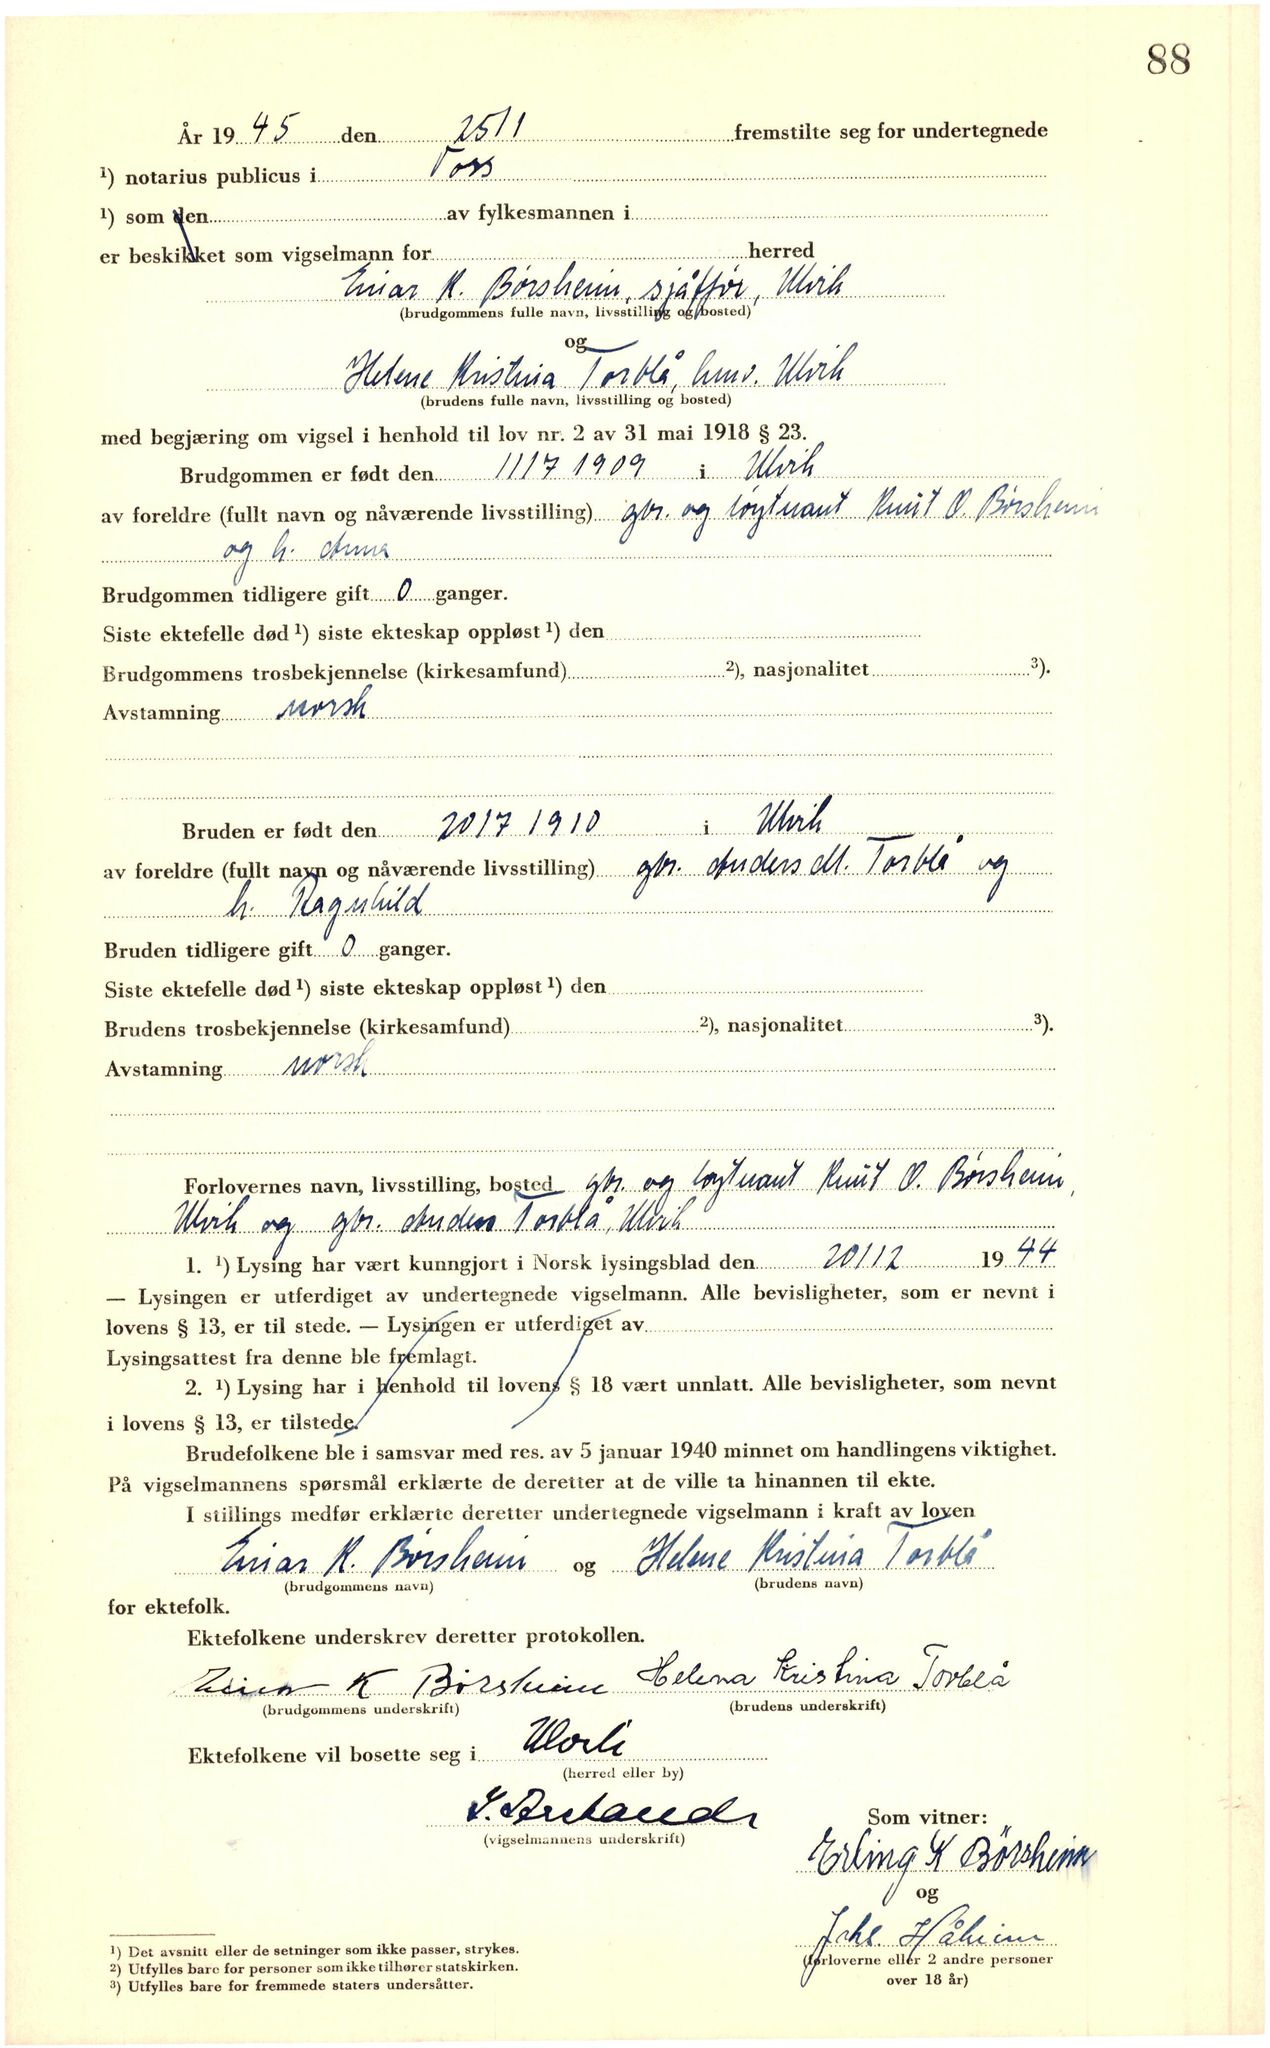 88
År 1945 den 25/1 fremstilte seg for undertegnede
¹) notarius publicus i Voss
¹) som den av fylkesmannen i
er beskikket som vigselmann for herred
Einar K. Børsheim, sjåffør, Ulvik
(brudgommens fulle navn, livsstilling og bosted)
og
Helene Kristina Torblå, hmv. Ulvik
(brudens fulle navn, livsstilling og bosted)
med begjæring om vigsel i henhold til lov nr. 2 av 31 mai 1918 § 23.
Brudgommen er født den 11/7 1909 i Ulvik
av foreldre (fullt navn og nåværende livsstilling) gbr. og løytnant Knut O. Børsheim
og h. Anna
Brudgommen tidligere gift 0 ganger.
Siste ektefelle død ¹) siste ekteskap oppløst ¹) den
Brudgommens trosbekjennelse (kirkesamfund) ²), nasjonalitet ³).
Avstamning norsk
Bruden er født den 20/7 1910 i Ulvik
av foreldre (fullt navn og nåværende livsstilling) gbr. Anders M. Torblå og
h. Ragnhild
Bruden tidligere gift 0 ganger.
Siste ektefelle død ¹) siste ekteskap oppløst ¹) den
Brudens trosbekjennelse (kirkesamfund) ²), nasjonalitet ³).
Avstamning norsk
Forlovernes navn, livsstilling, bosted gbr. og løytnant Knut O. Børsheim,
Ulvik og gbr. Anders Torblå, Ulvik
1. ¹) Lysing har vært kunngjort i Norsk lysingsblad den 20/12 1944
— Lysingen er utferdiget av undertegnede vigselmann. Alle bevisligheter, som er nevnt i
lovens § 13, er til stede. — Lysingen er utferdiget av
Lysingsattest fra denne ble fremlagt.
2. ¹) Lysing har i henhold til lovens § 18 vært unnlatt. Alle bevisligheter, som nevnt
i lovens § 13, er tilstede.
Brudefolkene ble i samsvar med res. av 5 januar 1940 minnet om handlingens viktighet.
På vigselmannens spørsmål erklærte de deretter at de ville ta hinannen til ekte.
I stillings medfør erklærte deretter undertegnede vigselmann i kraft av loven
Einar K. Børsheim og Helene Kristina Torblå
(brudgommens navn) (brudens navn)
for ektefolk.
Ektefolkene underskrev deretter protokollen.
Einar K Børsheim Helena Kristina Torblå
(brudgommens underskrift) (brudens underskrift)
Ektefolkene vil bosette seg i Ulvik
(herred eller by)
(vigselmannens underskrift)
Som vitner:
Erling K Børsheim
og
Johs Håheim
(forloverne eller 2 andre personer
over 18 år)
¹) Det avsnitt eller de setninger som ikke passer, strykes.
²) Utfylles bare for personer som ikke tilhører statskirken.
³) Utfylles bare for fremmede staters undersåtter.